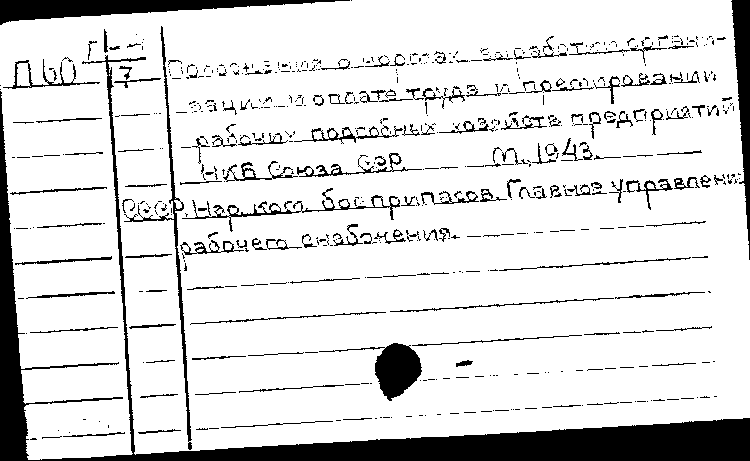 П60 Г-4
7
Положения о нормах выработки, органи-
зации и оплате труда и премировании
рабочих подсобных хозяйств предприятий
НКБ Союза ССР. М., 1943.
СССР. Нар. ком. боеприпасов. Главное управление
рабочего снабжения.